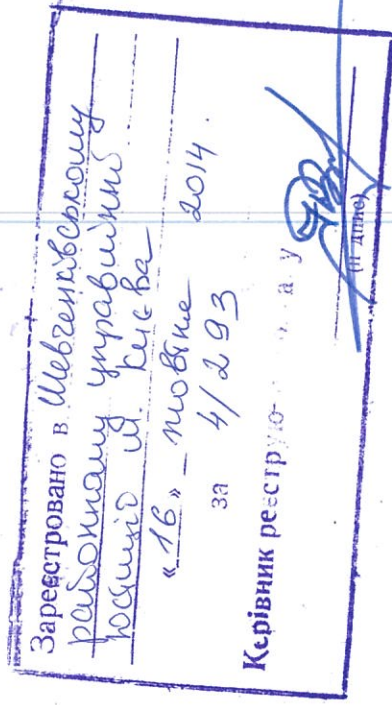 Зареєстровано в Шевченківському
районному управлінні
юстиції м. Києва
«16» жовтня 2014.
за 4/293
Керівник реєстру
(підпис)